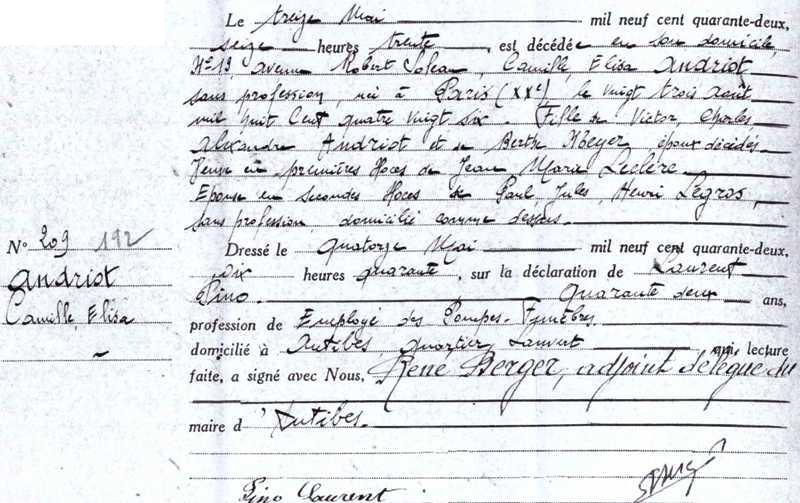 Le treize Mai mil neuf cent quarante-deux,
seize heures trente, est décédée en son domicile,
N° 19, avenue Robert Soleau, Camille, Elisa Andriot
sans profession, née à Paris (XXe) le vingt trois Août
mil huit Cent quatre vingt six. Fille de Victor, Charles
Alexandre Andriot et de Berthe Meyer époux décédés.
Veuve en premières Noces de Jean Marie Leclère.
Epouse en secondes Noces de Paul, Jules, Henri Légros,
sans profession, domicilié comme dessus.
N° 209 192
Andriot
Camille, Elisa
Dressé le quatorze Mai mil neuf cent quarante-deux,
dix heures quarante, sur la déclaration de Laurent
Pino. Quarante deux ans,
profession de Employé des Pompes-Funèbres.
domicilié à Antibes, quartier Lauvert qui, lecture
faite, a signé avec Nous, René Berger, adjoint délégué du
maire d'Antibes.
Pino Laurent